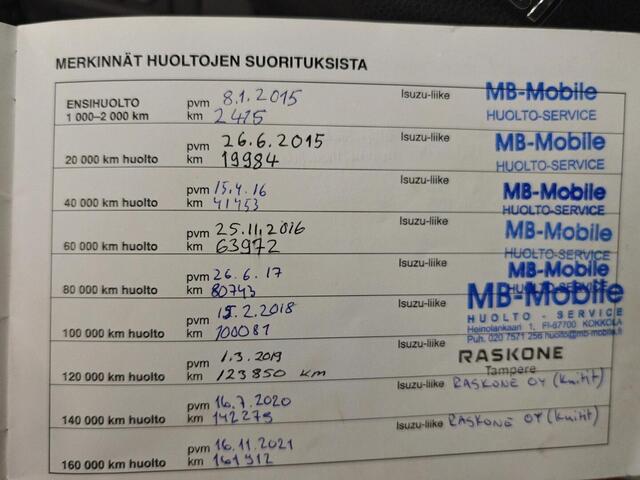 MERKINNÄT HUOLTOJEN SUORITUKSISTA
ENSIHUOLTO pvm 8.1.2015 Isuzu-liike MB-Mobile
1 000–2 000 km km 2415 HUOLTO-SERVICE
pvm 26.6.2015 Isuzu-liike MB-Mobile
20 000 km huolto km 19984 HUOLTO-SERVICE
pvm 15.4.16 Isuzu-liike MB-Mobile
40 000 km huolto km 41453 HUOLTO-SERVICE
pvm 25.11.2016 Isuzu-liike MB-Mobile
60 000 km huolto km 63972 HUOLTO-SERVICE
pvm 26.6.17 Isuzu-liike MB-Mobile
80 000 km huolto km 80743
pvm 15.2.2018 Isuzu-liike MB-Mobile
100 000 km huolto km 100081 HUOLTO - SERVICE
Heinolankaari 1, FI-67700 KOKKOLA
Puh. 020 7571 256 huolto@mb-mobile.fi
pvm 1.3.2019 Isuzu-liike RASKONE
120 000 km huolto km 123850 km Tampere
pvm 16.7.2020 Isuzu-liike RASKONE OY (kuitit)
140 000 km huolto km 142275
pvm 16.11.2021 Isuzu-liike RASKONE OY (kuitit)
160 000 km huolto km 161912